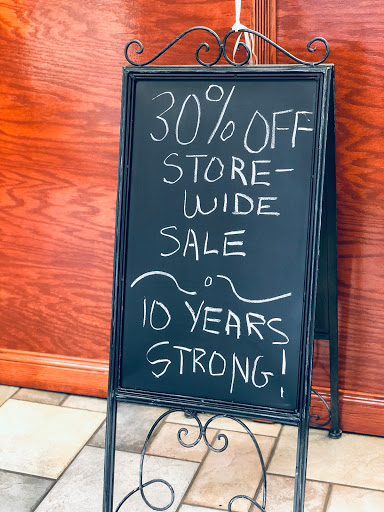 30% OFF
STORE-
WIDE
SALE
10 YEARS
STRONG!